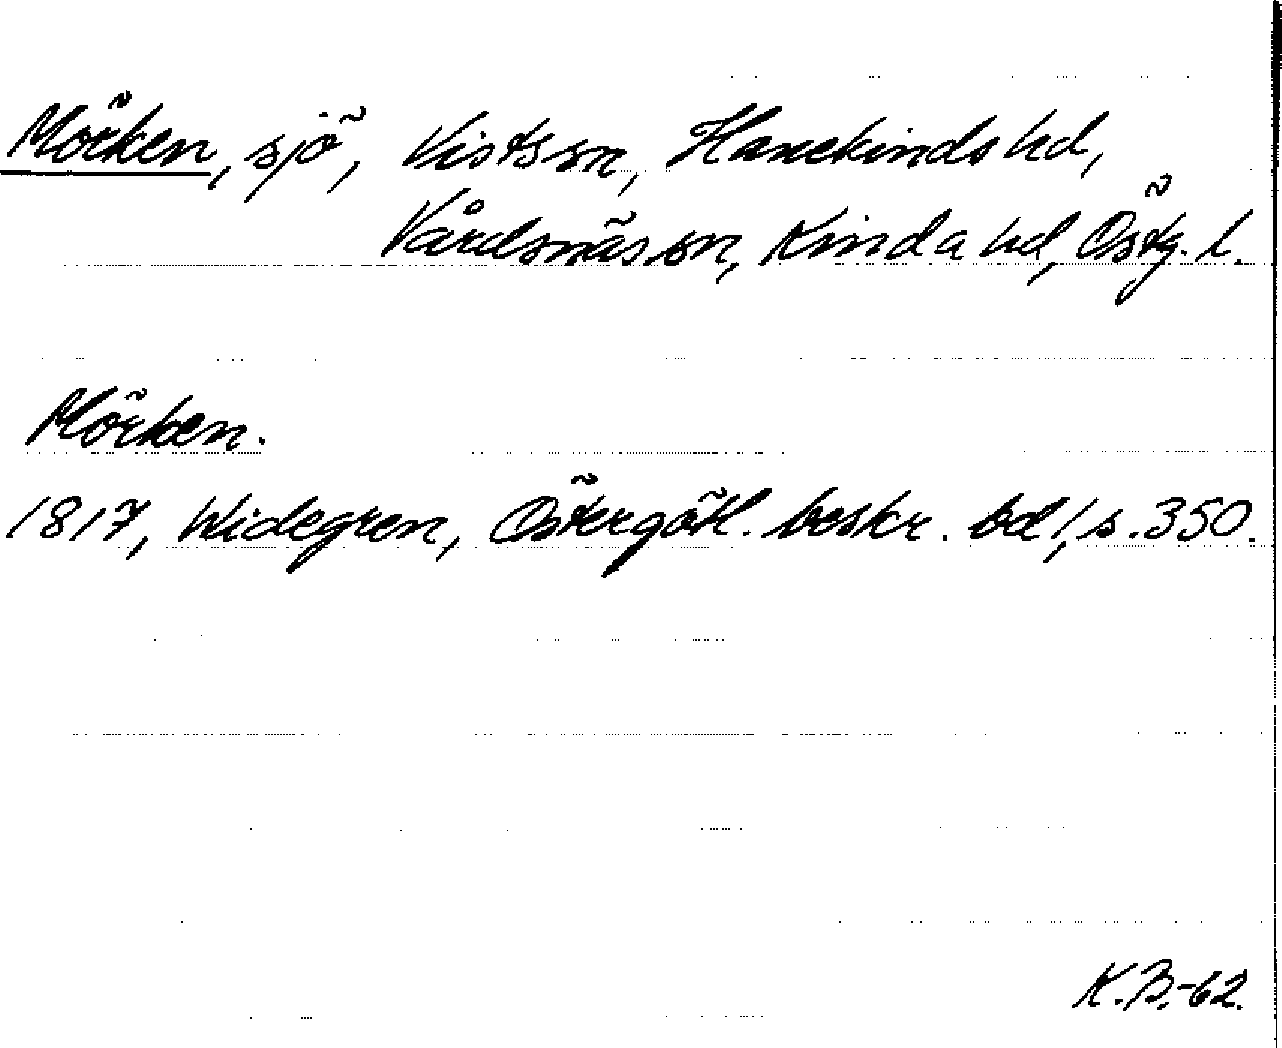 Mörken, sjö, Vists sn, Hanekinds hd,
Vårdsnäs sn, Kinda hd, Östg. l.
Mörken.
1817, Widegren, Östergötl. beskr. bd 1, s. 350.
K.B.-62.